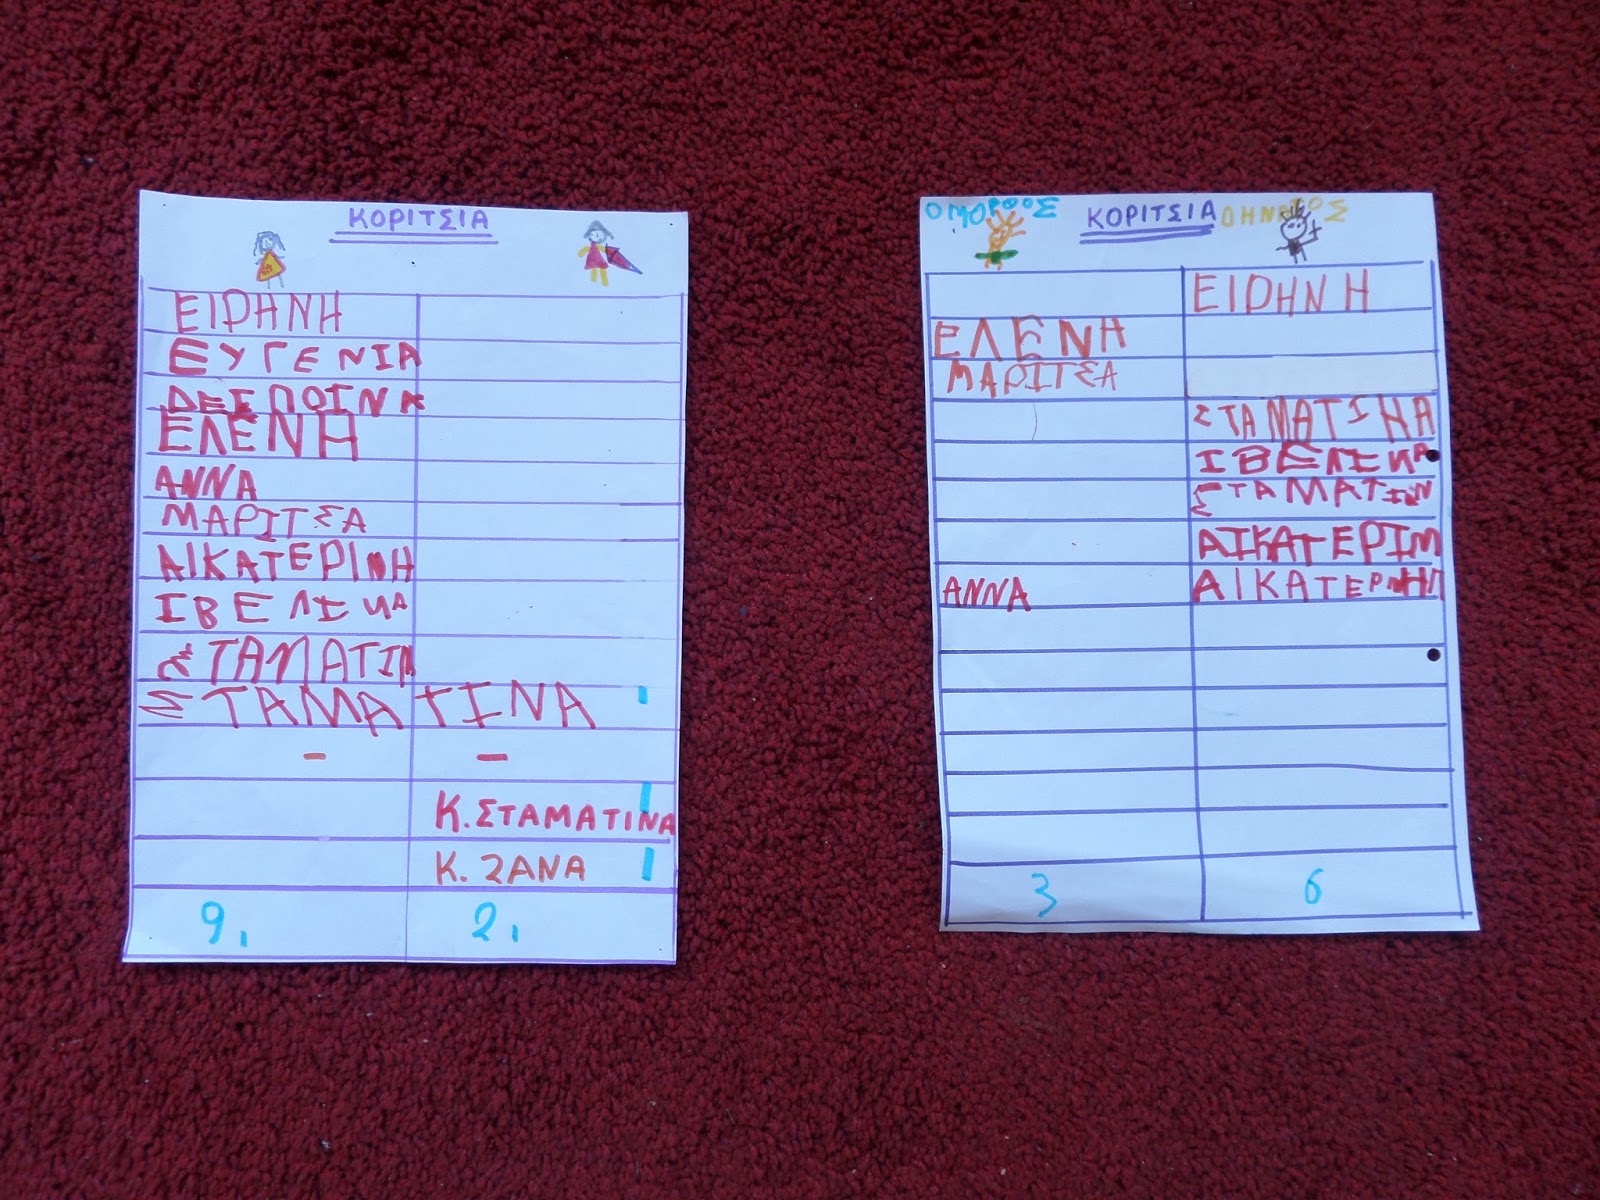 ΚΟΡΙΤΣΙΑ
ΕΙΡΗΝΗ
ΕΥΓΕΝΙΑ
ΔΕΣΠΟΙΝΑ
ΕΛΕΝΗ
ΑΝΝΑ
ΜΑΡΙΤΣΑ
ΑΙΚΑΤΕΡΙΝΗ
ΙΒΕΛΙΝΑ
ΣΤΑΜΑΤΙΝ
ΣΤΑΜΑΤΙΝΑ
- -
Κ.ΣΤΑΜΑΤΙΝΑ
Κ. ΖΑΝΑ
9 2
ΚΟΡΙΤΣΙΑ
ΕΙΡΗΝΗ
ΕΛΕΝΗ
ΜΑΡΙΤΣΑ
ΣΤΑΜΑΤΙΝΑ
ΙΒΕΛΙΝΑ
ΣΤΑΜΑΤΙΝ
ΑΙΚΑΤΕΡΙΝ
ΑΝΝΑ ΑΙΚΑΤΕΡΙΝΗ
3 6